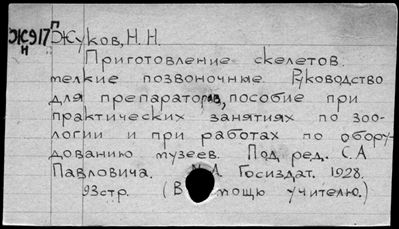 Ж917 Жуков, Н. Н.
н
Приготовление скелетов.
мелкие позвоночные. Руководство
для препараторов, пособие при
практических занятиях по зоо-
логии и при работах по обору-
дованию музеев. Под ред. С.А
Павловича. Госиздат. 1928.
93стр. (В мощю учителю.)